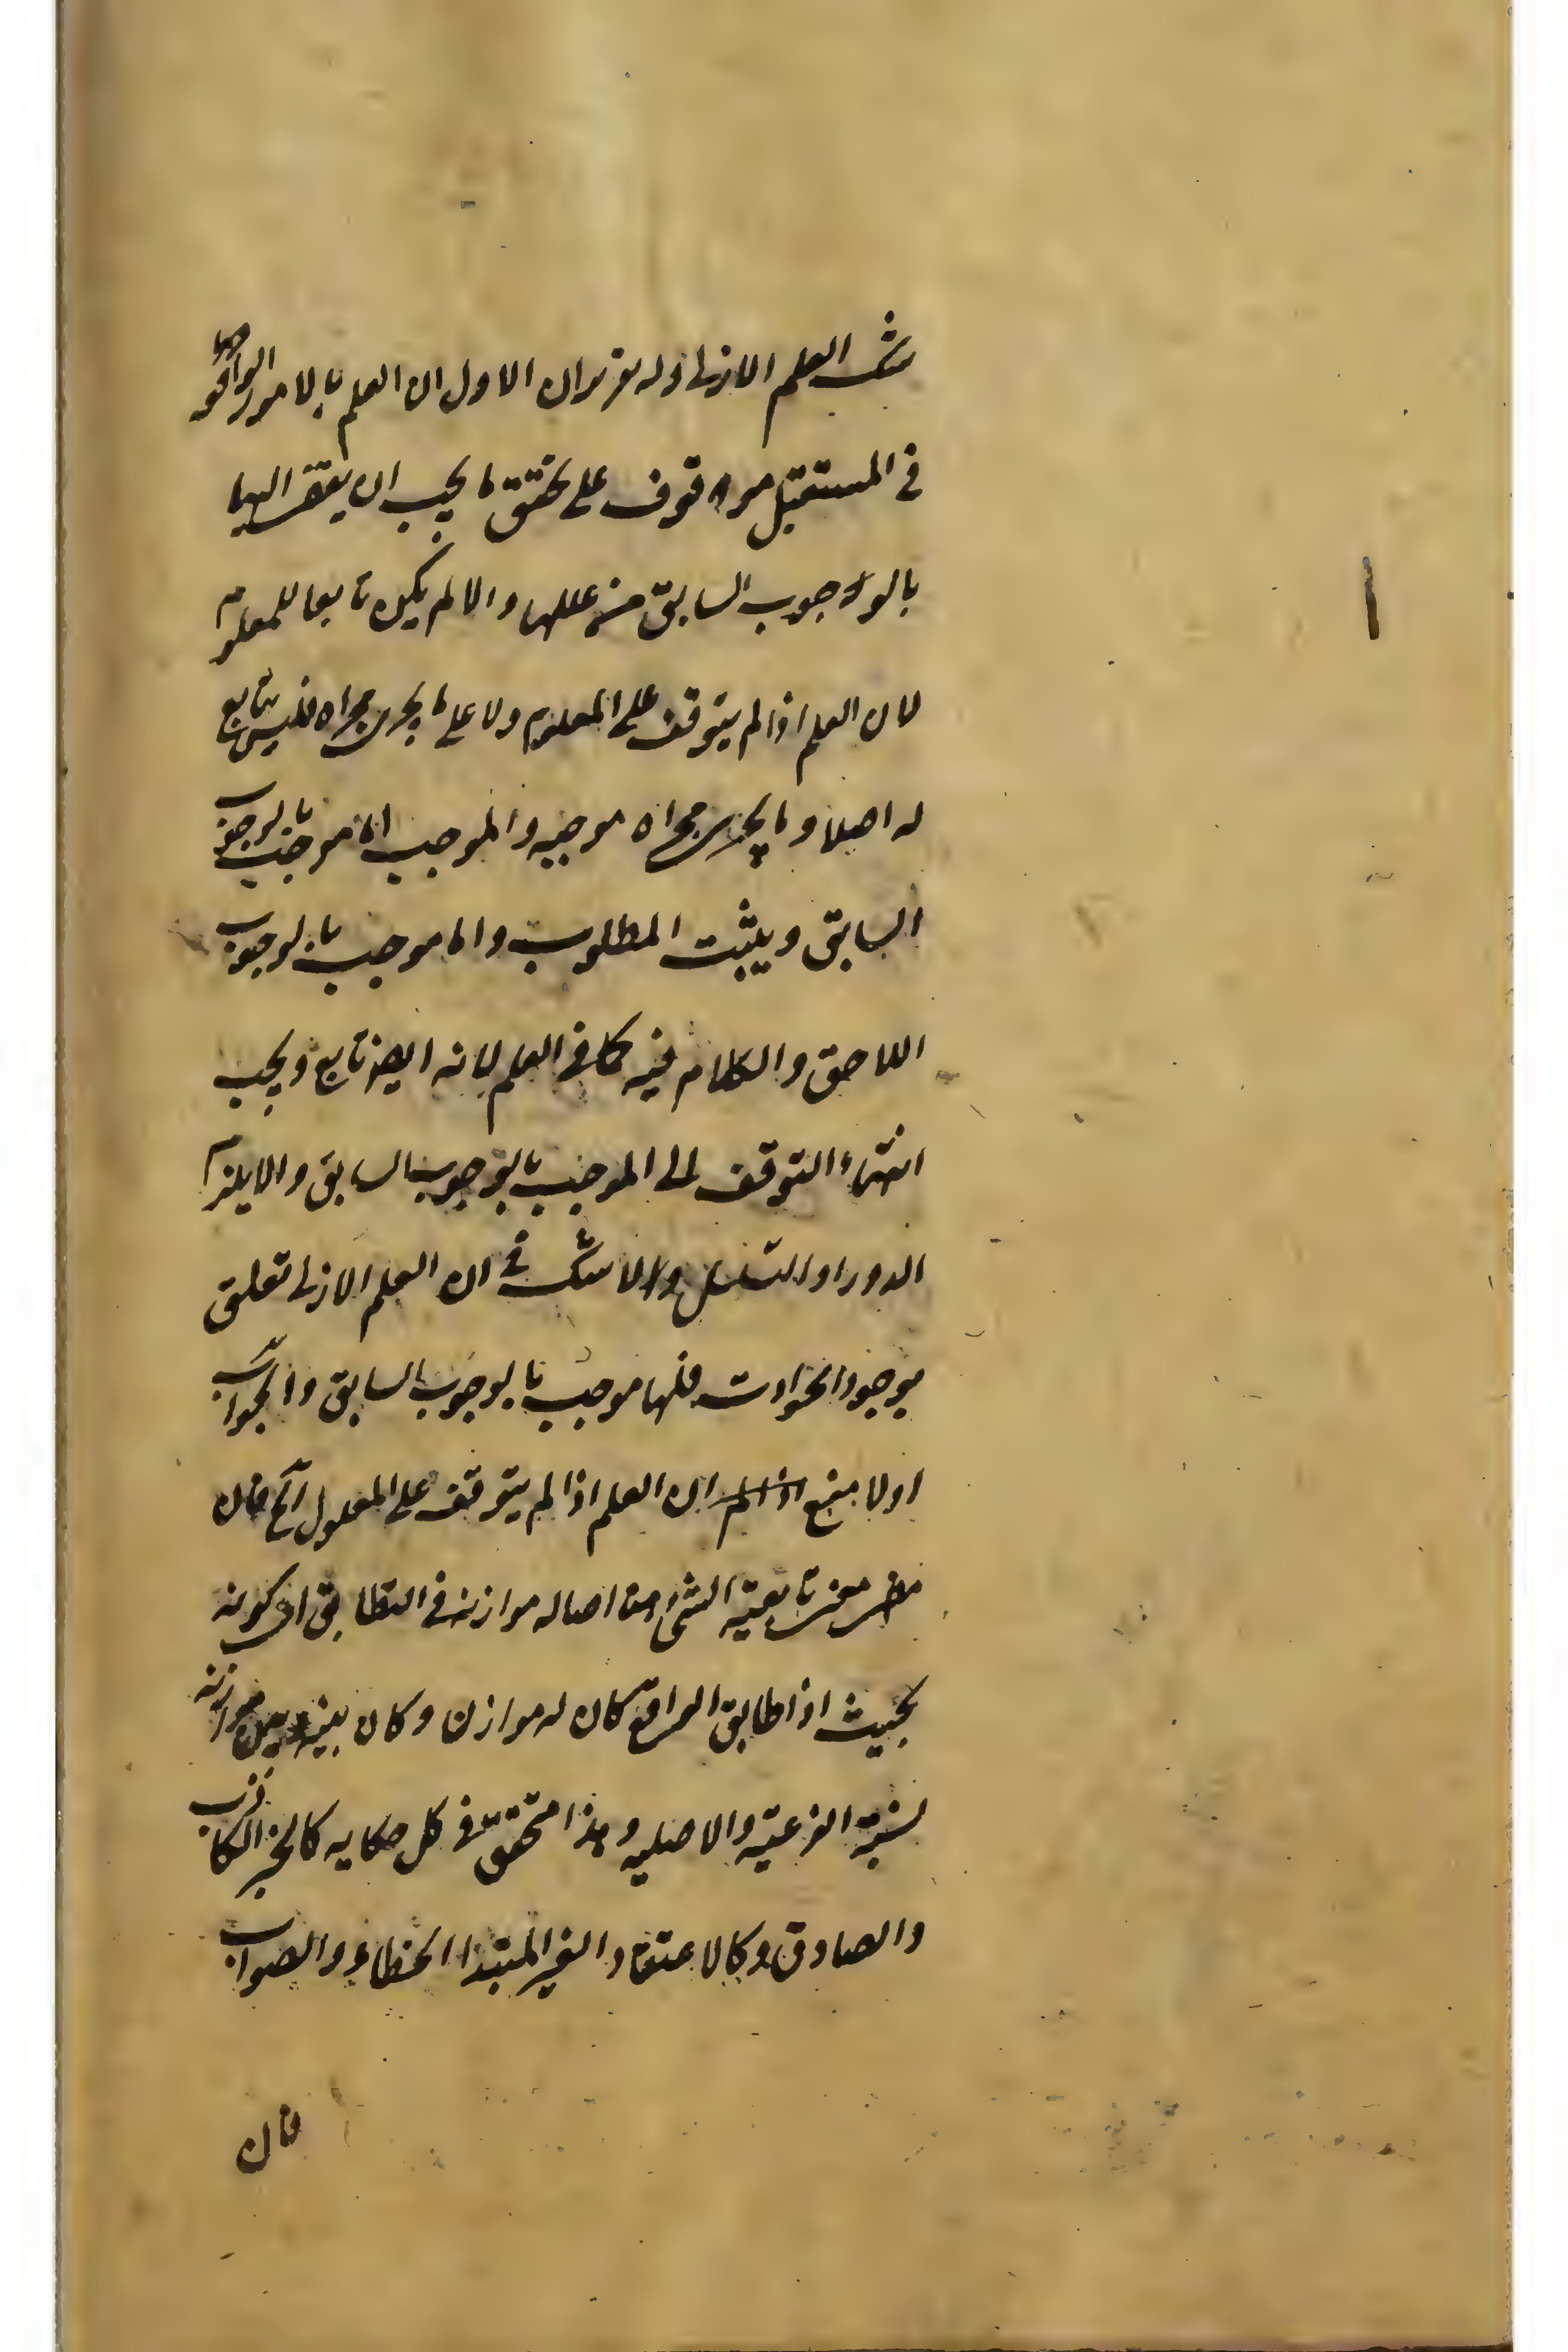 شك العلم الازلى وله تقريران الاول ان العلم بالامور الواقعة
فى المستقبل موقوف على تحقق ما يجب ان يفتقر اليها
بالوجوب السابق من عللها والا لم يكن تابعا للمعلوم
لان العلم اذا لم يتوقف على المعلوم ولا على ما يجرى مجراه فليس بتابع
له اصلا وما يجرى مجراه موجبه والموجب اما موجب بالوجوب
السابق ويثبت المطلوب واما موجب بالوجوب
اللاحق والكلام فيه كما فى العلم لانه ايضا تابع ويجب
انتهاء التوقف الى الموجب بالوجوب السابق والا يلزم
الدور او التسلسل ولا شك فى ان العلم الازلى تعلق
بوجود الحوادث فلها موجب بالوجوب السابق والجواب
اولا بمنع ان العلم اذا لم يتوقف على المعلول آلخ فان
معنى تابعية الشئ اصاله موازنه فى التطابق اى كونه
بحيث اذا طابق الواقع كان له موازن وكان بينه وبين موازنه
نسبة الفرعية والاصليه وهذا متحقق فى كل حكايه كالخبر الكاذب
والصادق وكالاعتقاد الغير المبتدا الخطاء والصواب
فان